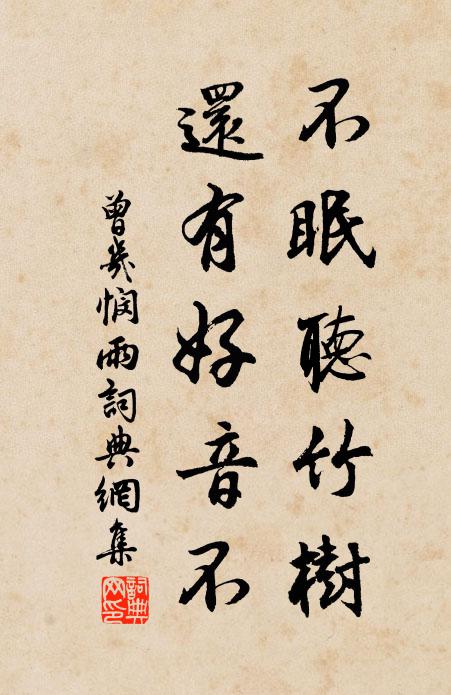 不眠聽竹樹
還有好音不
曾幾憫雨詞典網集
詞典網印